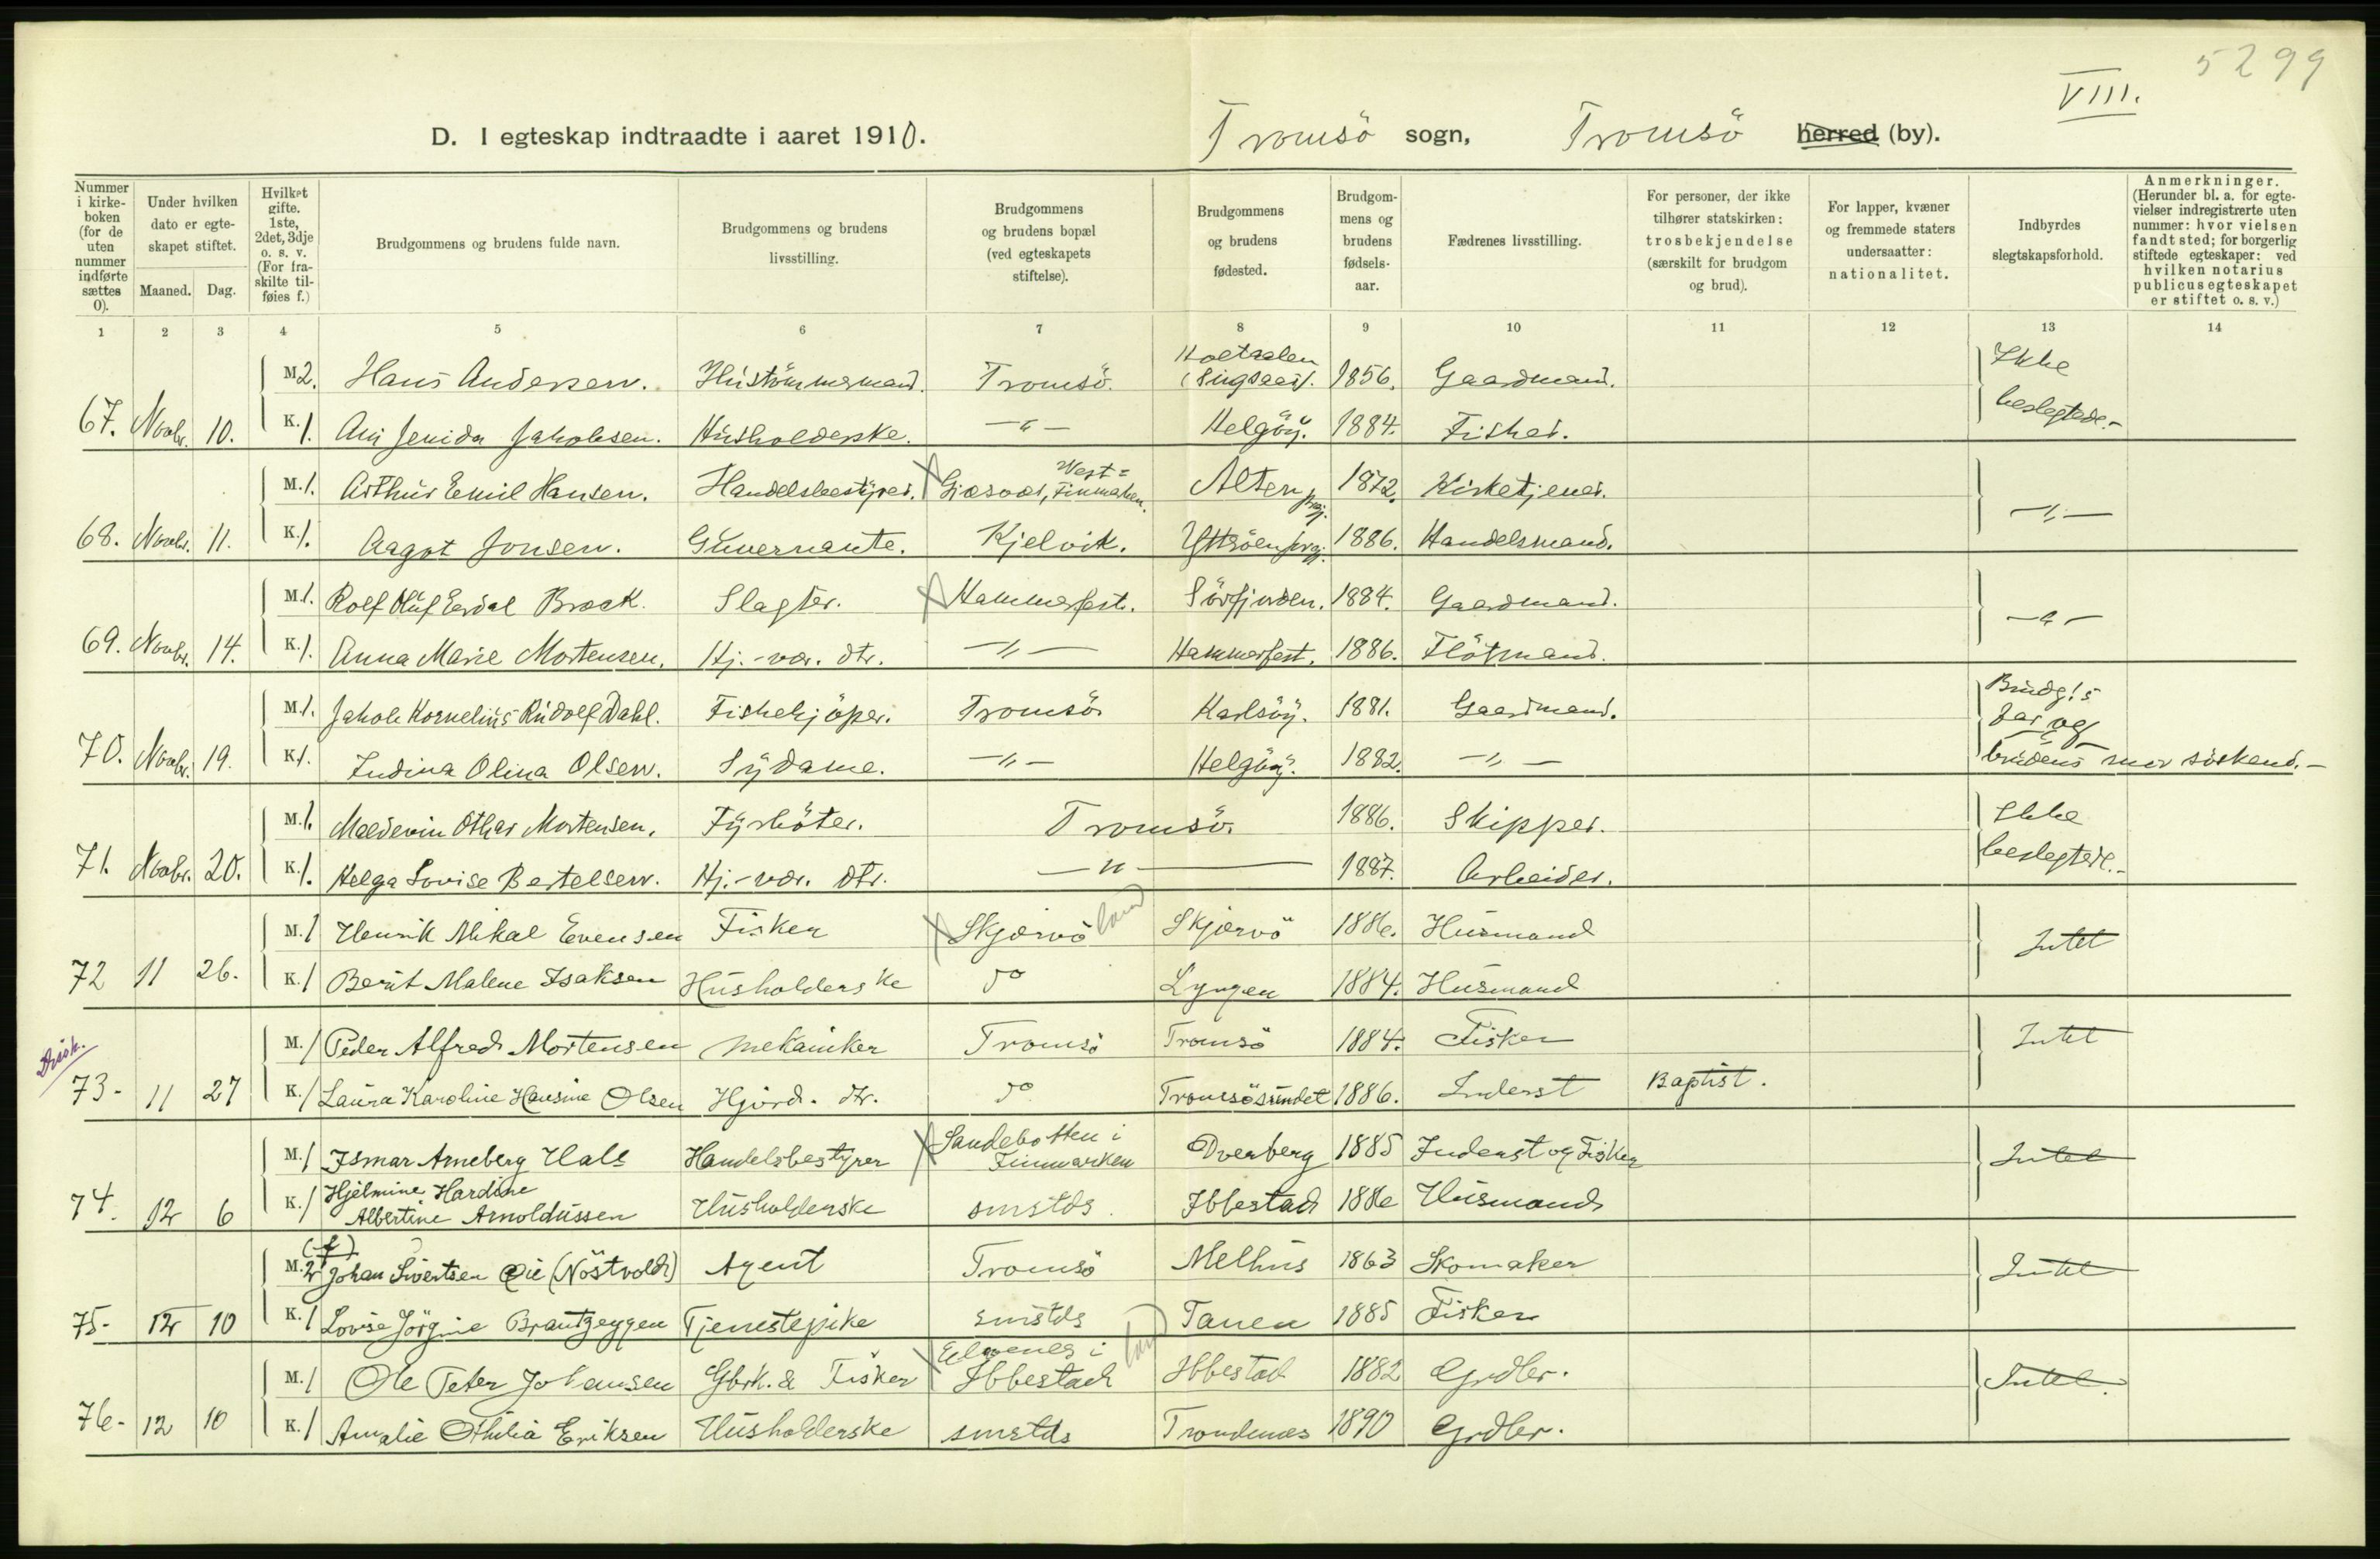 5299
VIII.
D. I egteskap indtraadte i aaret 1910. Tromsö sogn, Tromsö herred (by).
Nummer i kirkeboken (for de uten nummer indførte sættes 0). Under hvilken dato er egteskapet stiftet. Maaned. Dag. Hvilket gifte. 1ste, 2det, 3dje o. s. v. (For fraskilte tilføies f.) Brudgommens og brudens fulde navn. Brudgommens og brudens livsstilling. Brudgommens og brudens bopæl (ved egteskapets stiftelse). Brudgommens og brudens fødested. Brudgommens og brudens fødselsaar. Fædrenes livsstilling. For personer, der ikke tilhører statskirken: trosbekjendelse (særskilt for brudgom og brud). For lapper, kvæner og fremmede staters undersaatter: nationalitet. Indbyrdes slegtskapsforhold. Anmerkninger. (Herunder bl. a. for egtevielser indregistrerte uten nummer: hvor vielsen fandt sted; for borgerlig stiftede egteskaper: ved hvilken notarius publicus egteskapet er stiftet o. s. v.)
1 2 3 4 5 6 7 8 9 10 11 12 13 14
M. 2. Hans Andersen. Hustömmermand. Tromsö. Holtaalen (Singsaas). 1856. Gaardmand. Ikke
67. Novbr. 10. K. 1. Jenida Jakobsen. Husholderske. —"— Helgöy. 1884. Fisker. beslegtede.-
M. 1. Arthur Emil Hansen. Handelsbestyrer. Vest= Finmarken. Alten prgj. 1872. Kirketjener. —"—
68. Novbr. 11. K. 1. Aagot Jonsen. Guvernante. Kjelvik. prgj. 1886. Handelsmand.
M. 1. Rolf Oluf Erdal Brock. Slagter. Hammerfest. Sörfjorden. 1884. Gaardmand. —"—
69. Novbr. 14. K. 1. Anna Marie Mortensen. Hj.-vær. dtr. —"— Hammerfest. 1886. Flötmand.
M. 1. Jakob Kornelius Rudolf Dahl. Fiskekjöper. Tromsö. Karlsöy. 1881. Gaardmand. Brudg!s far og
70. Novbr. 19. K. 1. Indina Olina Olsen. Sydame. —"— Helgöy. 1882. —"— brudens mor söskend.-
M. 1. Maedevin Othar Mortensen. Fyrböter. Tromsö. 1886. Skipper. Ikke
71. Novbr. 20. K. 1. Helga Lovise Bertelsen. Hj.-vær. dtr. —"— 1887. Arbeider. beslegtede.-
M. 1 Henrik Mikal Evensen Fisker Skjervö land Skjervö 1886. Husmand Intet
72 11 26. K. 1 Berit Malene Isaksen Husholderske do Lyngen 1884. Husmand
M. 1 Peder Alfred Mortensen Mekaniker Tromsö Tromsö 1884. Fisker Intet
73- 11 27 K. 1 Laura Karoline Hansine Olsen Hjvrd. dtr. do Tromsösundet 1886. Inderst Baptist.
M. 1 Ismar Arneberg Hals Handelsbestyrer Sandebotten i Finmarken Dverberg 1885 Inderst og Fisker Intet
74. 12 6 K. 1 Hjelmine Hardine Albertine Arnoldussen Husholderske smstds. Ibbestad 1886 Husmand
M. 2 (f) Johan Sivertsen Øie (Nöstvold) Agent Tromsö Melhus 1863 Skomaker Intet
75- 12 10 K. 1 Lovise Jörgine Brantzeggen Tjenestepike smstds Tanen 1885 Fisker
M. 1 Ole Peter Johansen Gbrk. & Fisker Elvenes i Ibbestad land Ibbestad 1882 Grdbr. Intet.
76- 12 10 K. 1 Amalie Othilia Eriksen Husholderske smstds Trondenes 1890 Grdbr.